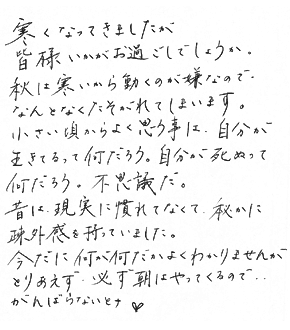 寒くなってきましたが
皆様いかがお過ごしでしょうか。
秋は寒いから動くのが嫌なので
なんとなくたそがれてしまいます。
小さい頃からよく思う事は、自分が
生きてるって何だろう。自分が死ぬって
何だろう。不思議だ。
昔は、現実に慣れてなくて、秘かに
疎外感を持っていました。
今だに何が何だかよくわかりませんが
とりあえず、必ず朝はやってくるので‥
がんばらないとナ♡